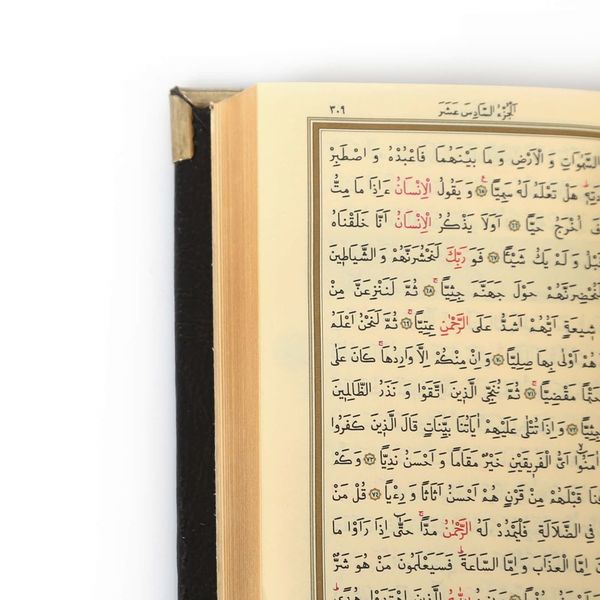 اَلْجُزْءُ السَّادِسَ عَشَرَ
٣٠٩
السَّمٰوَاتِ وَ الْاَرْضِ وَ مَا بَيْنَهُمَا فَاعْبُدْهُ وَ اصْطَبِرْ
هَلْ تَعْلَمُ لَهُ سَمِيًّا ﴿٦٥﴾ وَ يَقُولُ الْاِنْسَانُ ءَاِذَا مَا مِتُّ
فَ اُخْرَجُ حَيًّا ﴿٦٦﴾ اَوَلَا يَذْكُرُ الْاِنْسَانُ اَنَّا خَلَقْنَاهُ
قَبْلُ وَ لَمْ يَكُ شَيْئًا ﴿٦٧﴾ فَوَ رَبِّكَ لَنَحْشُرَنَّهُمْ وَ الشَّيَاطِينَ
لَنُحْضِرَنَّهُمْ حَوْلَ جَهَنَّمَ جِثِيًّا ﴿٦٨﴾ ثُمَّ لَنَنْزِعَنَّ مِنْ
شِيعَةٍ اَيُّهُمْ اَشَدُّ عَلَى الرَّحْمٰنِ عِتِيًّا ﴿٦٩﴾ ثُمَّ لَنَحْنُ اَعْلَمُ
هُمْ اَوْلٰى بِهَا صِلِيًّا ﴿٧٠﴾ وَ اِنْ مِنْكُمْ اِلَّا وَارِدُهَا كَانَ عَلٰى
حَتْمًا مَقْضِيًّا ﴿٧١﴾ ثُمَّ نُنَجِّى الَّذِينَ اتَّقَوْا وَ نَذَرُ الظَّالِمِينَ
جِثِيًّا ﴿٧٢﴾ وَ اِذَا تُتْلٰى عَلَيْهِمْ اٰيَاتُنَا بَيِّنَاتٍ قَالَ الَّذِينَ كَفَرُوا
اٰمَنُوا اَىُّ الْفَرِيقَيْنِ خَيْرٌ مَقَامًا وَ اَحْسَنُ نَدِيًّا ﴿٧٣﴾ وَ كَمْ
قَبْلَهُمْ مِنْ قَرْنٍ هُمْ اَحْسَنُ اَثَاثًا وَ رِءْيًا ﴿٧٤﴾ قُلْ مَنْ
فِى الضَّلَالَةِ فَلْيَمْدُدْ لَهُ الرَّحْمٰنُ مَدًّا حَتّٰى اِذَا رَاَوْا مَا
اِمَّا الْعَذَابَ وَ اِمَّا السَّاعَةَ فَسَيَعْلَمُونَ مَنْ هُوَ شَرٌّ